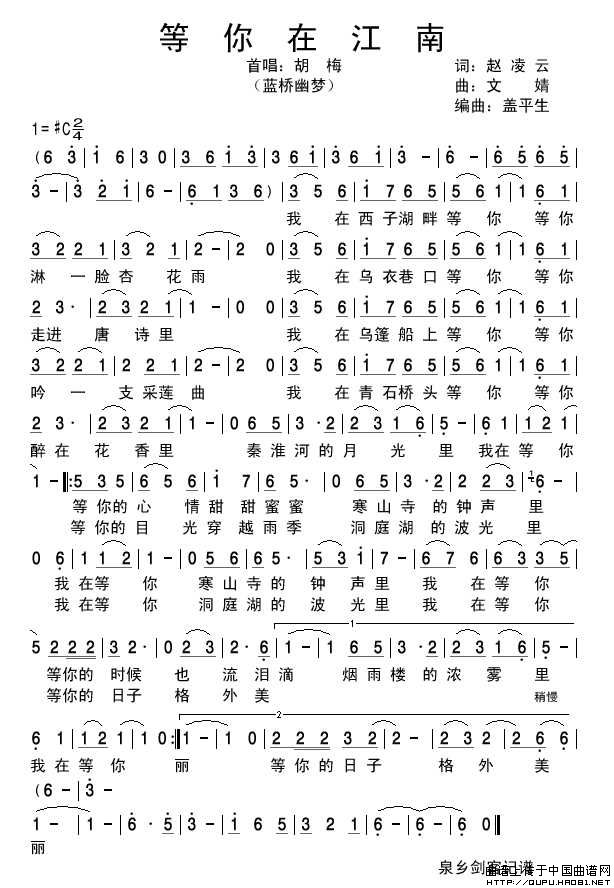 等你在江南
首唱：胡 梅
词：赵凌云
（蓝桥幽梦）
曲：文 婧
编曲：盖平生
1=#C 2/4
(6 3 | 1 6 | 3 0 | 3 6 1 3 | 3 6 1 3 | 3 6 1 | 3 - | 6 - | 6 5 6 5 |
3 - | 3 2 1 | 6 - | 6 1 3 6 ) | 3 5 6 | 1 7 6 5 | 5 6 1 | 1 6 1 |
我 在西子湖畔等 你 等你
3 2 2 1 | 3 2 1 | 2 - | 2 0 | 3 5 6 | 1 7 6 5 | 5 6 1 | 1 6 1 |
淋 一脸杏 花雨 我 在乌衣巷口等 你 等你
2 3· | 2 3 2 1 | 1 - | 0 0 | 3 5 6 | 1 7 6 5 | 5 6 1 | 1 6 1 |
走进 唐 诗里 我 在乌篷船上等 你 等你
3 2 2 1 | 2 2 1 | 2 - | 2 0 | 3 5 6 | 1 7 6 5 | 5 6 1 | 1 6 1 |
吟 一 支采莲曲 我 在青石桥头等 你 等你
2 3· | 2 3 2 1 | 1 - | 0 6 5 | 3·2 | 2 3 1 6 | 5 - | 6 1 | 1 2 1 |
醉在 花 香里 秦淮河的月 光 里 我在等 你
1 - |: 5 3 5 | 6 5 6 | 1 7 | 6 5· | 0 6 5 | 3·2 | 2 2 3 | 1 6 - |
等你的心 情甜 甜蜜蜜 寒山寺 的钟声 里
等你的目 光穿 越雨季 洞庭湖 的波光 里
0 6 | 1 1 2 | 1 - | 0 6 5 | 6 5· | 5 3 1 | 7 - | 6 7 6 | 6 3 3 5 |
我 在等 你 寒山寺的 钟 声里 我 在等 你
我 在等 你 洞庭湖的 波 光里 我 在等 你
5 2 2 2 | 3 2· | 0 2 3 | 2·6 | 1 - | 1 6 5 | 3·2 | 2 3 1 6 | 5 - |
1
等你的 时候 也 流泪滴 烟雨楼 的浓 雾 里
等你的 日子 格 外美
稍慢
6 1 | 1 2 1 | 1 0 :| 1 - | 1 0 | 2 2 2 3 2 | 2 - | 2 3 2 | 2 6 6 |
2
我 在等 你 丽 等你的日子 格 外 美
(6 - | 3 -
1 - | 1 - | 6·3 | 3 2 1 | 6 - | 6 - | 6 0 ‖
丽
泉乡剑客记谱
曲谱上传于中国曲谱网
http://QUPU.HAO81.NET